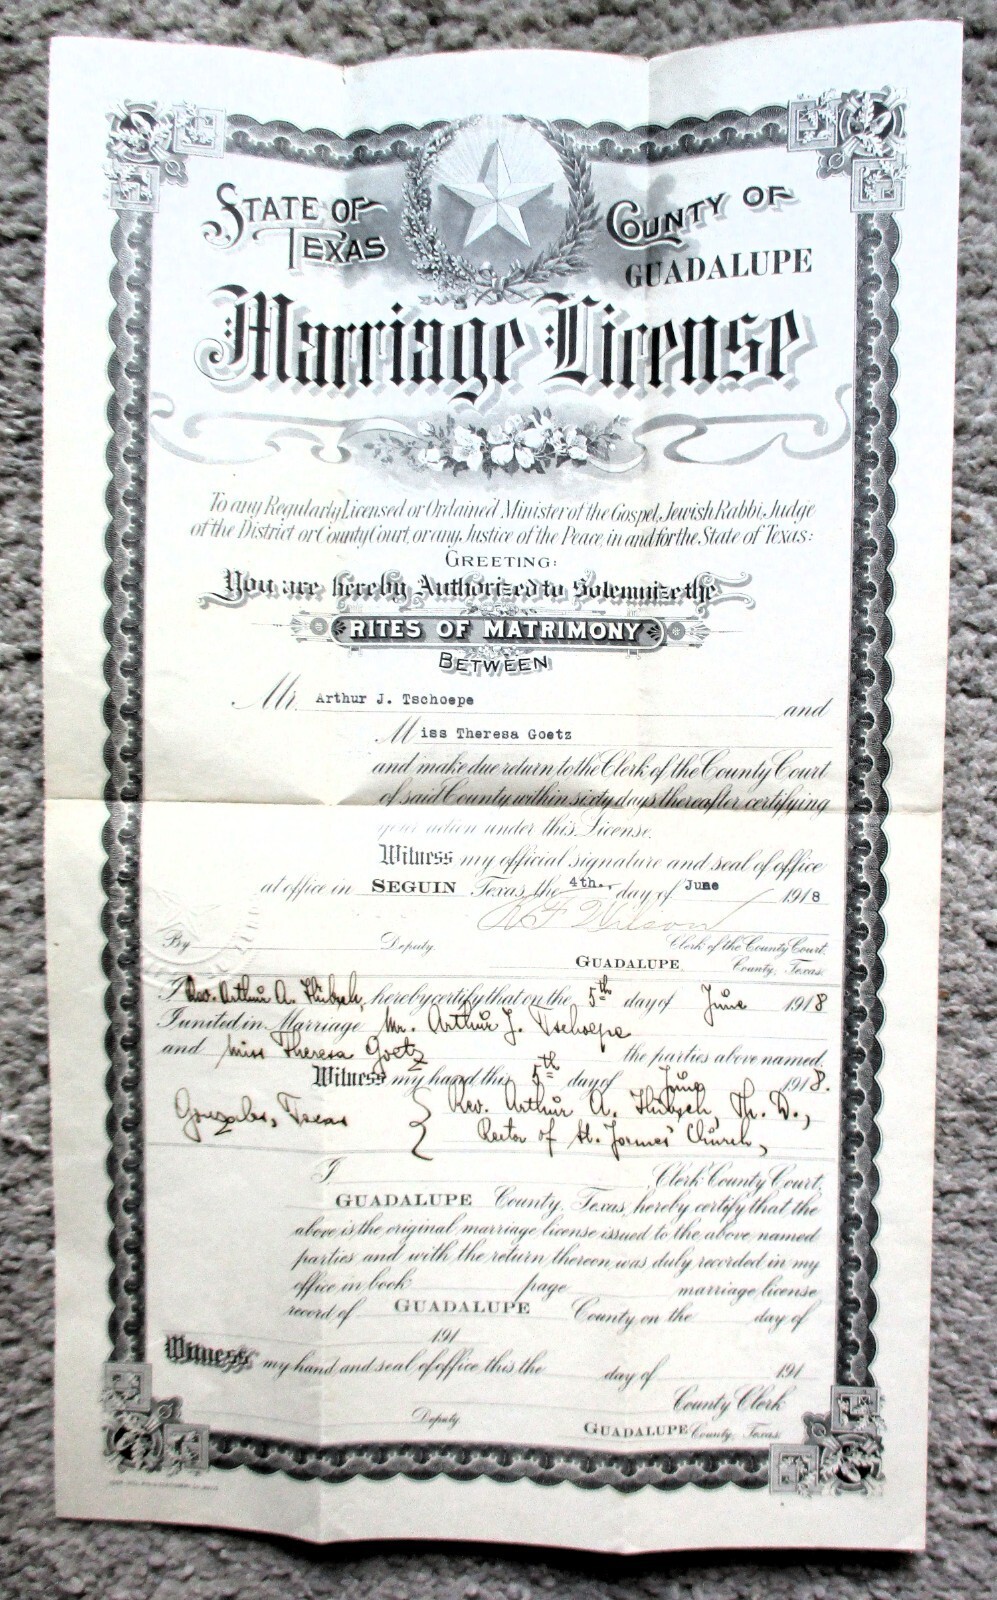 STATE OF TEXAS
COUNTY OF GUADALUPE
Marriage License
To any Regularly Licensed or Ordained Minister of the Gospel, Jewish Rabbi, Judge
of the District or County Court, or any Justice of the Peace, in and for the State of Texas:
GREETING:
You are hereby Authorized to Solemnize the
RITES OF MATRIMONY
BETWEEN
Mr. Arthur J. Tschoepe and
Miss Theresa Goetz
and make due return to the Clerk of the County Court
of said County within sixty days thereafter certifying
your action under this License.
Witness my official signature and seal of office
at office in SEGUIN Texas, the 4th. day of June 1918
Wilson
By Deputy. Clerk of the County Court,
GUADALUPE County, Texas
I Rev. Arthur A. hereby certify that on the 5th day of June 1918
I united in Marriage Mr. Arthur J. Tschoepe
and Miss Theresa Goetz the parties above named.
Witness my hand this 5th day of June 1918.
Gonzales, Texas Rev. Arthur A. Th. D.,
Rector of St. James' Church,
I Clerk County Court,
GUADALUPE County, Texas, hereby certify that the
above is the original marriage license issued to the above named
parties and with the return thereon was duly recorded in my
office in book page marriage license
record of GUADALUPE County on the day of
191
Witness my hand and seal of office this the day of 191
County Clerk
Deputy. GUADALUPE County, Texas